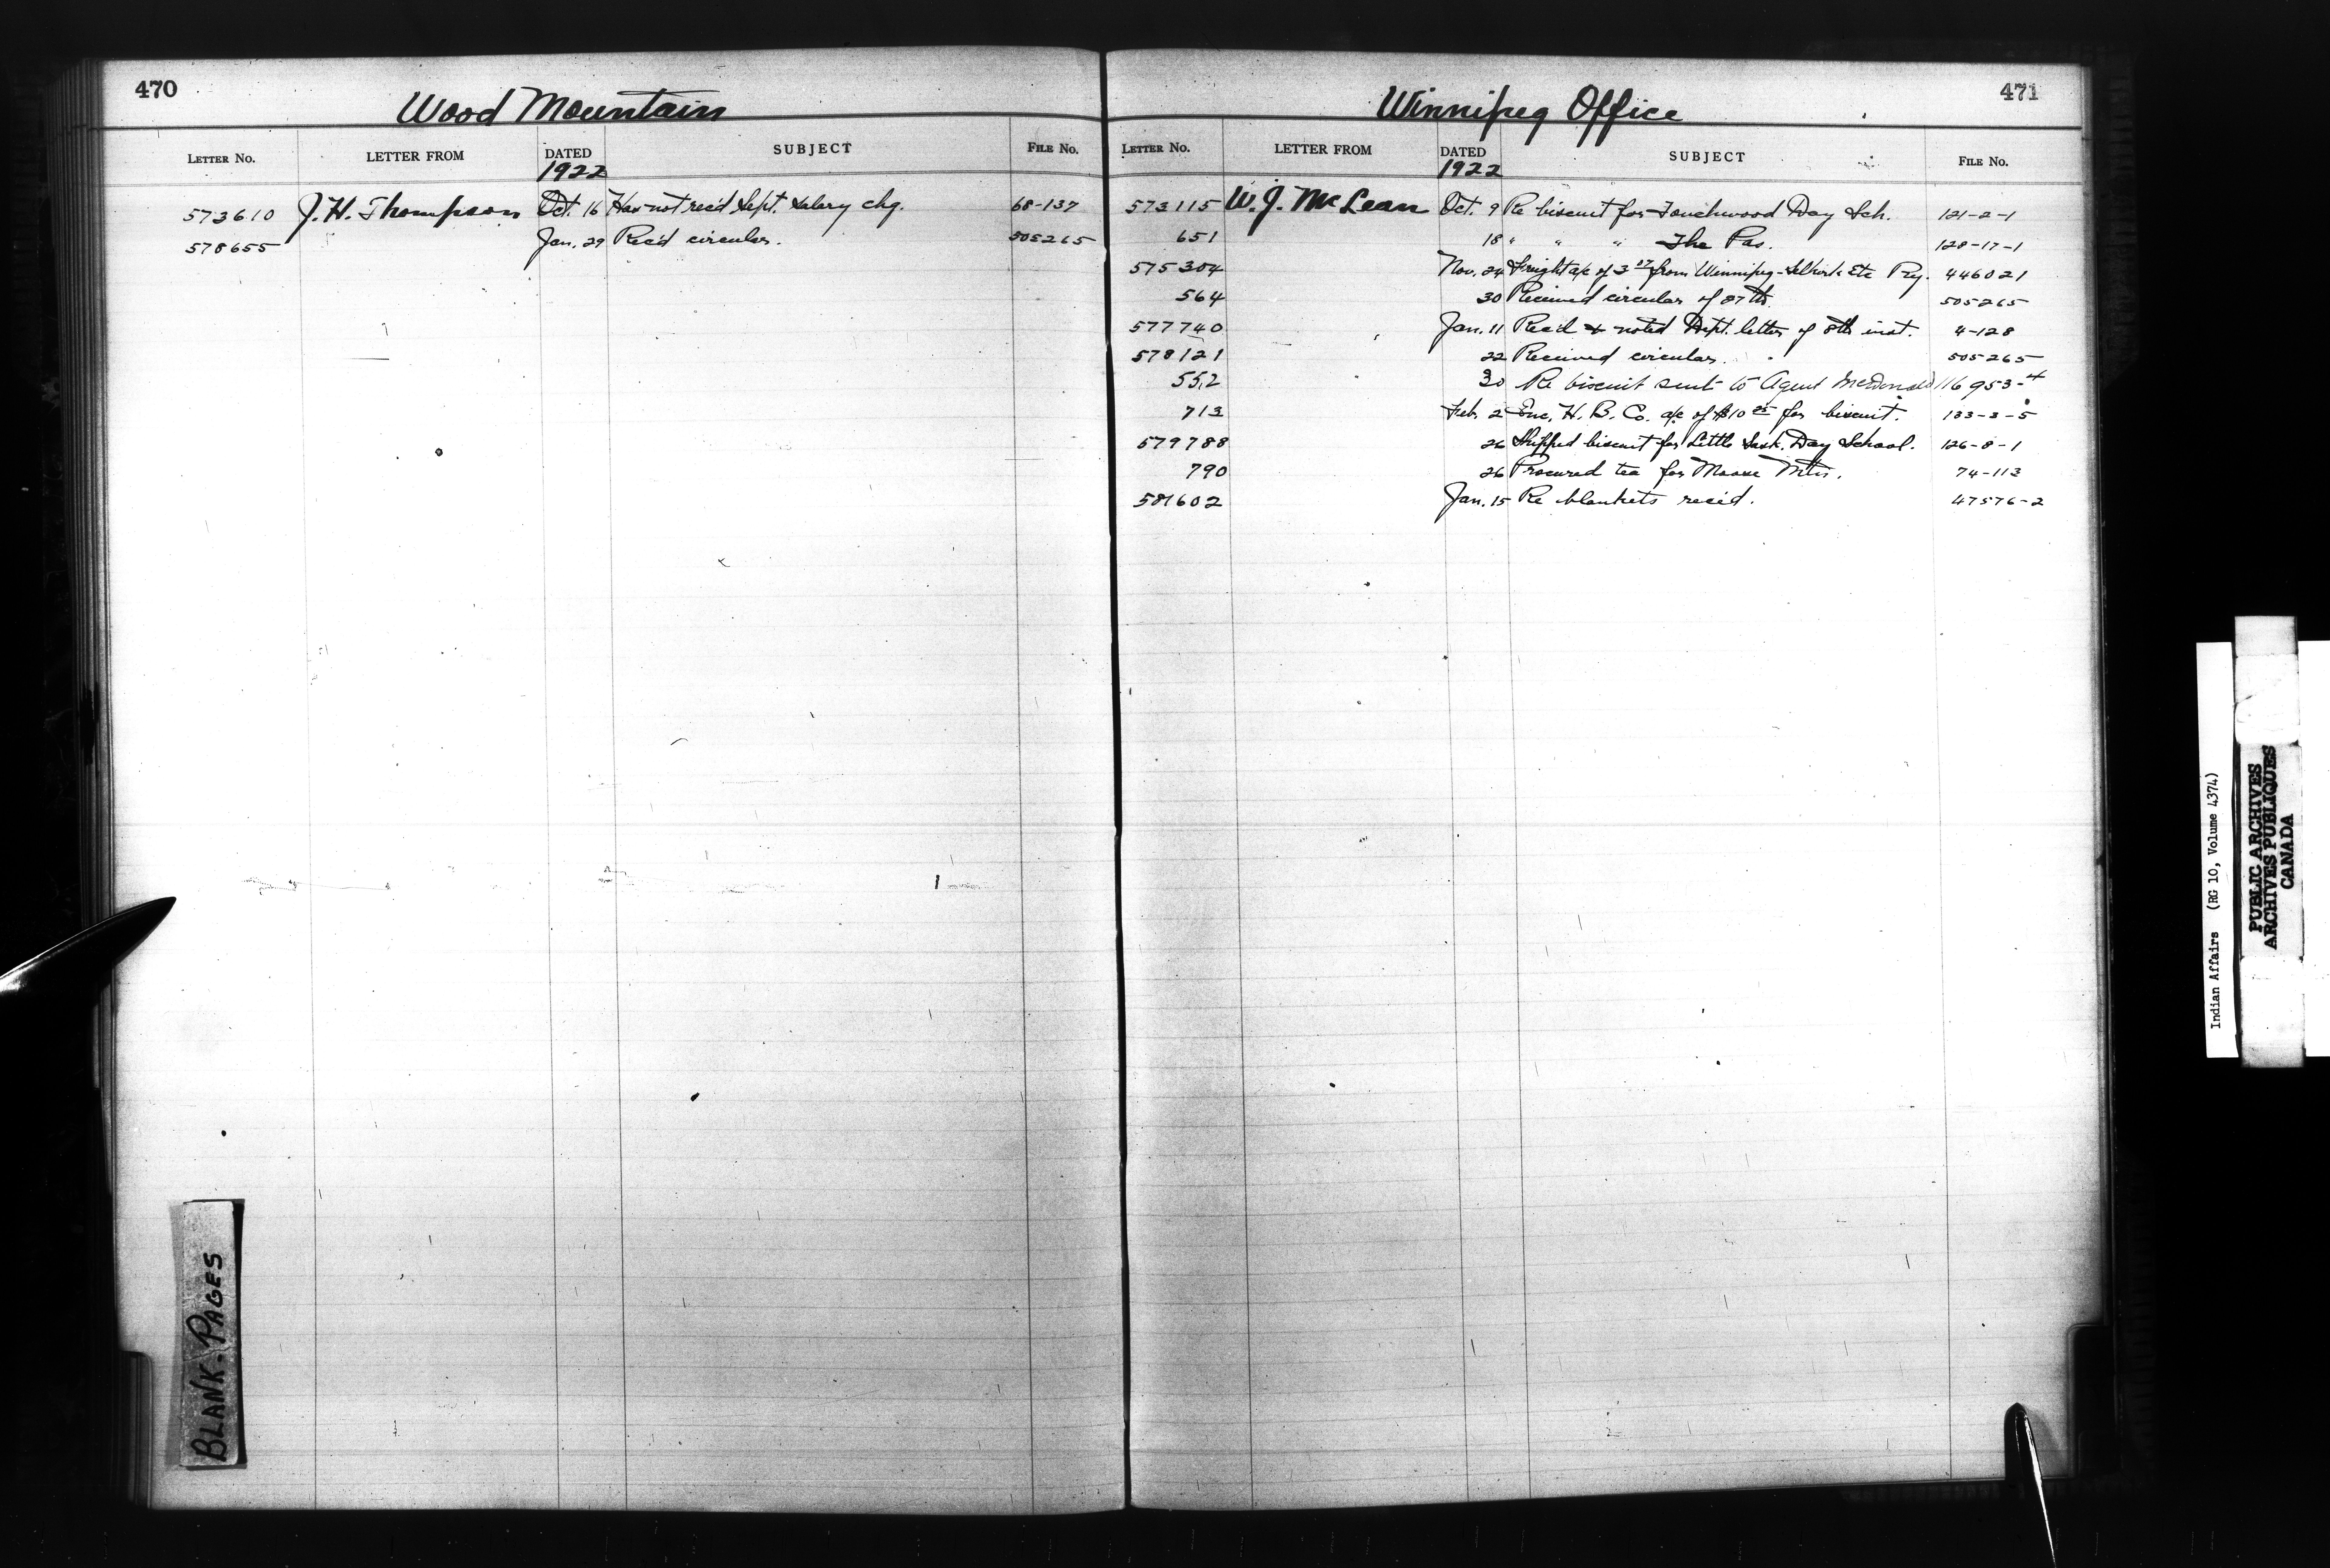 470
Wood Mountain
LETTER No. LETTER FROM DATED SUBJECT FILE No.
1922
573610 J. H. Thompson Oct. 16 Has not rec'd Sept. salary chq. 68-137
578655 Jan. 29 Rec'd circular. 505265
BLANK-PAGES
471
Winnipeg Office
LETTER No. LETTER FROM DATED SUBJECT FILE No.
1922
573115 W. J. McLean Oct. 9 Re biscuit for Touchwood Day Sch. 121-2-1
651 18 " " " The Pas. 128-17-1
575304 Nov. 24 Freight a/c of from Winnipeg-Selkirk Etc Ry. 446021
564 30 Received circular of 505265
577740 Jan. 11 Rec'd & noted Dept. letter of 8th inst. 4-128
578121 22 Received circular. 505265
552 30 Re biscuit sent to Agent McDonald 116953-4
713 Feb. 2 Enc. H. B. Co. a/c of for biscuit. 133-3-5
579788 26 Shipped biscuit for Little Sask. Day School. 126-8-1
790 26 Procured tea for Moose Mtn. 74-113
581602 Jan. 15 Re blankets rec'd. 47576-2
Indian Affairs (RG 10, Volume 4374)
PUBLIC ARCHIVES
ARCHIVES PUBLIQUES
CANADA